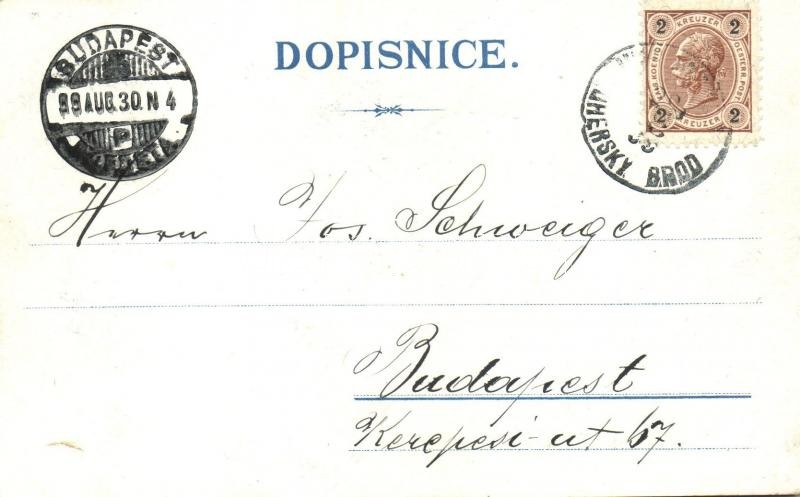 BUDAPEST
99 AUG. 30. N 4
P
DOPISNICE.
2 KREUZER 2
KAIS. KOENIGL.
OESTERR. POST
2 KREUZER 2
UHERSKY BROD
Herrn Jos. Schweiger
Budapest
Kerepesi-ut 67.